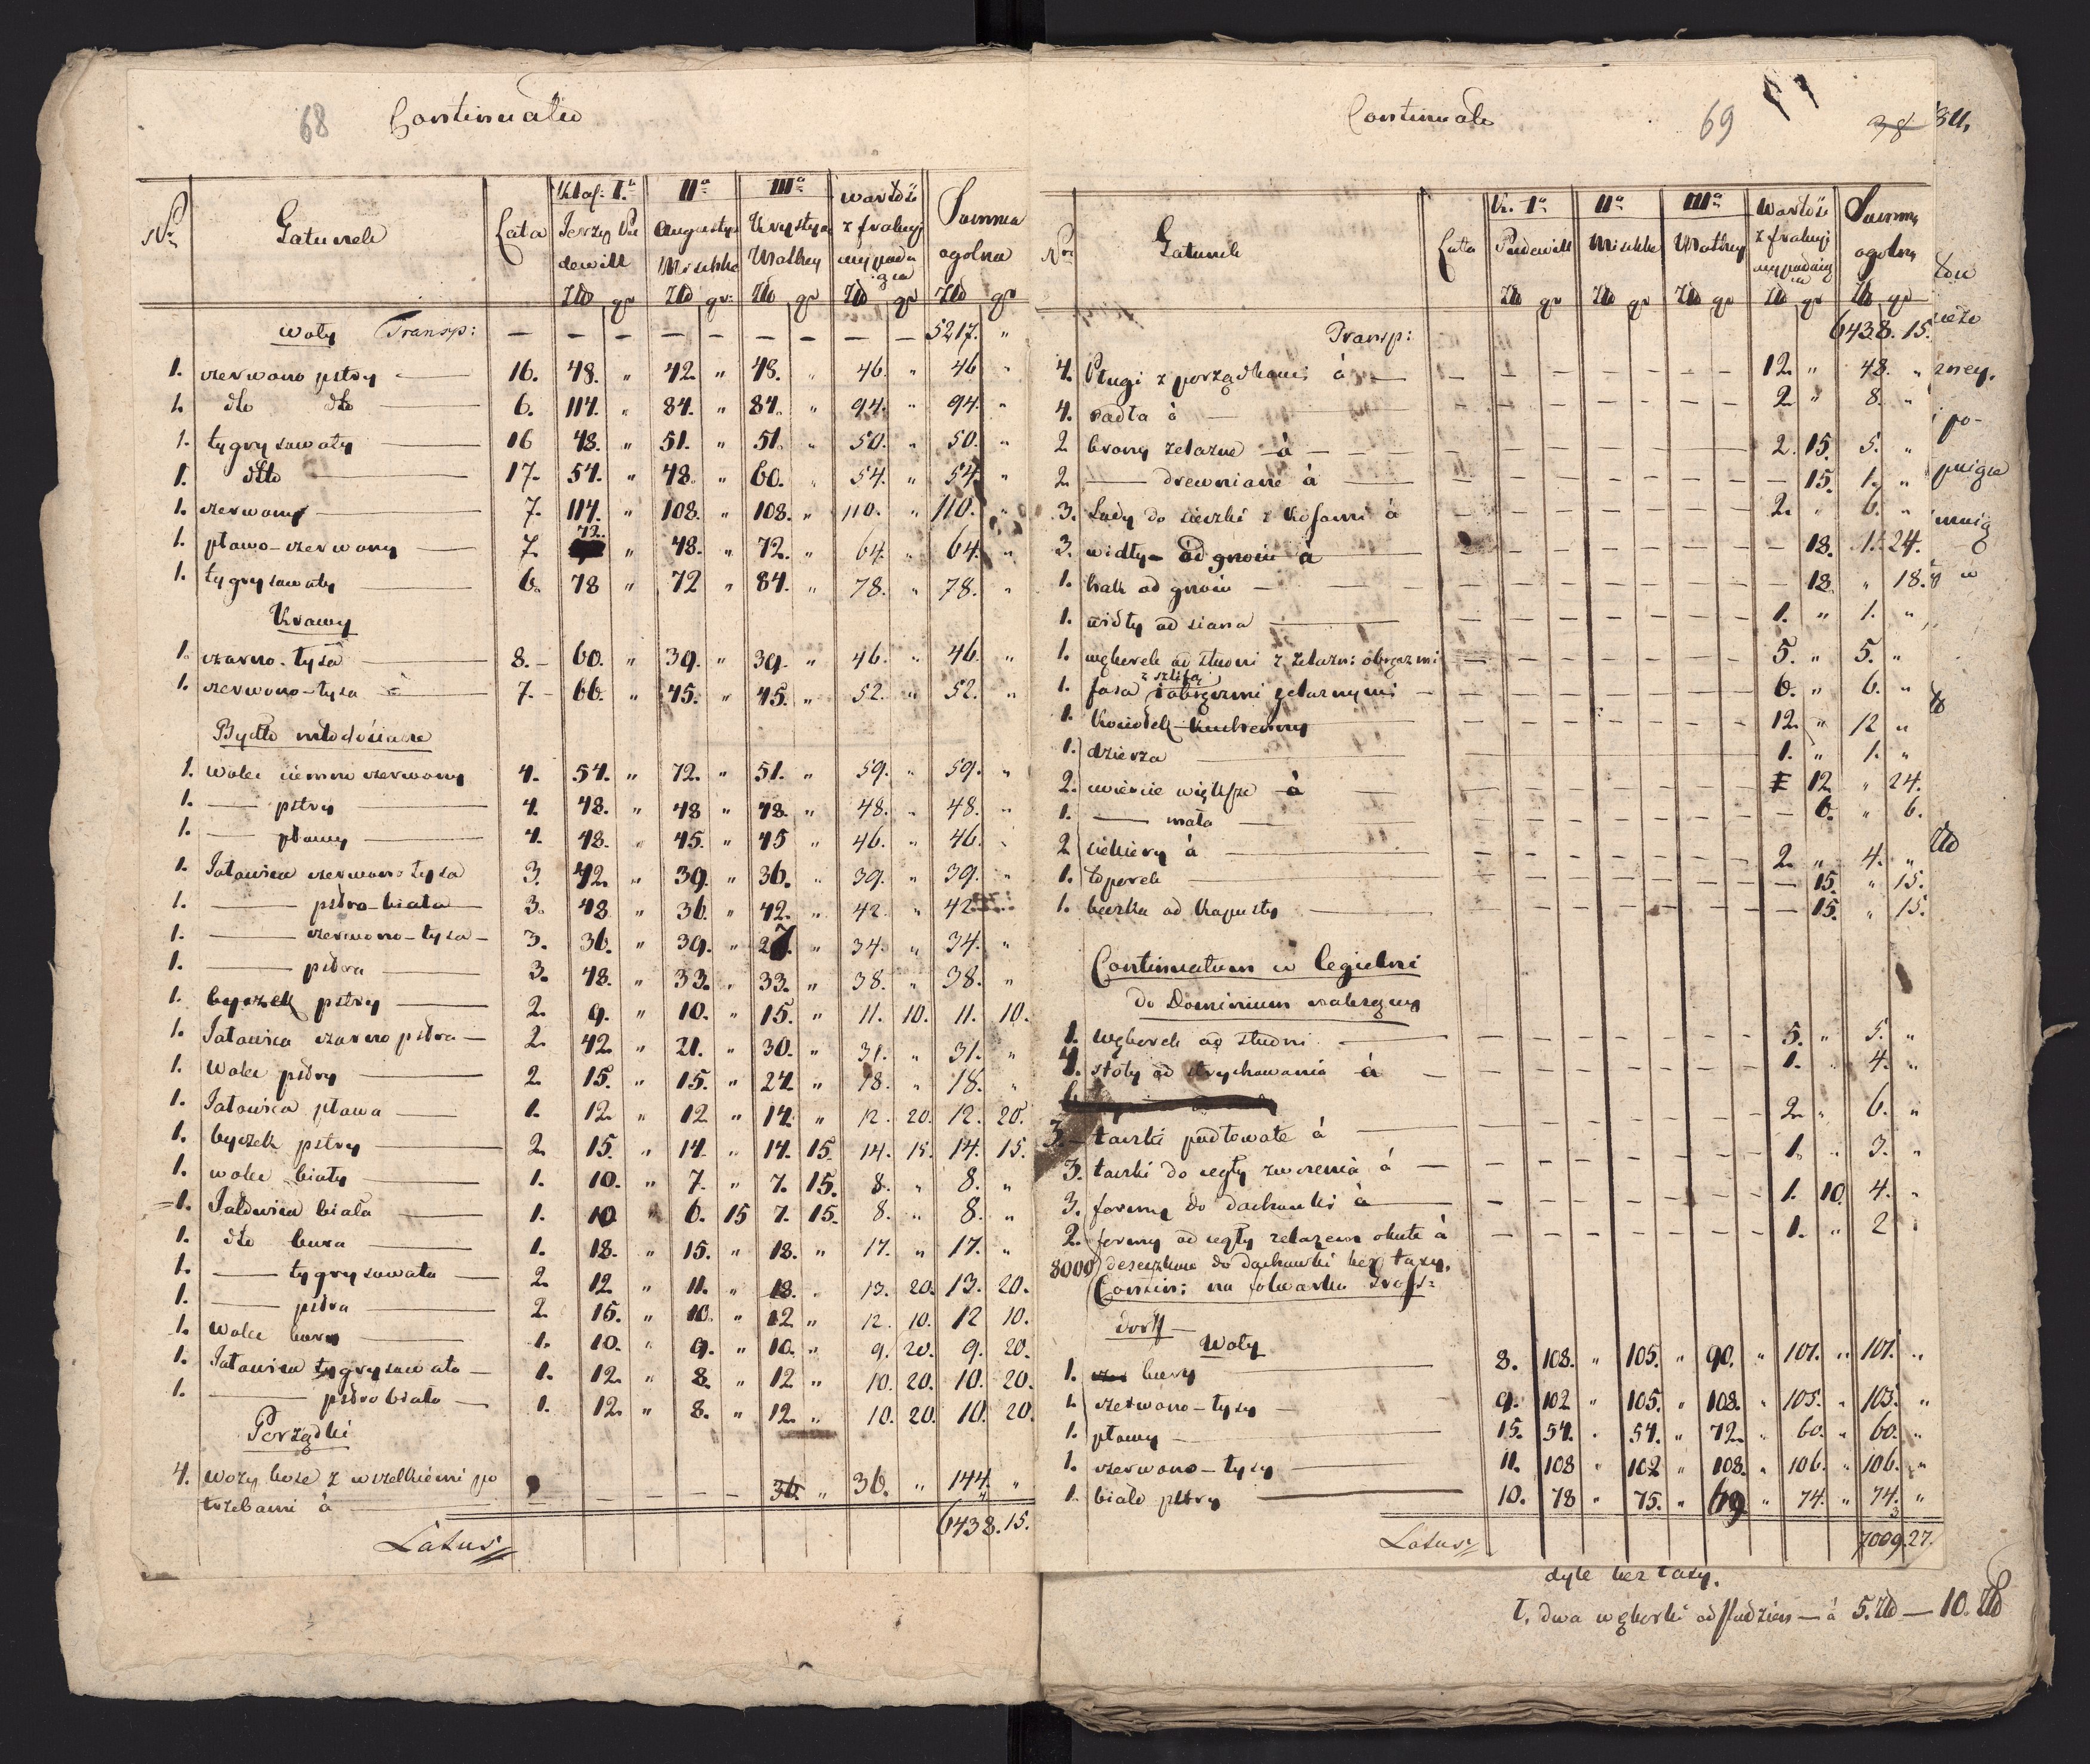 68 Continuatio
Nro Gatunek Lata Klas: I.a IIa IIIa wartość Summa
Jerzy Pu Augustyn Krystyan z frakcyi ogolna
dewill Mischke Mathey wypada
iąca
Zło gr Zło gr: Zło gr Zło gr Zło gr
woły Transp: — — — — — — — — 5217. "
1. czerwono pstry — 16. 48. " 42. " 48. " 46. " 46 "
1. dto dto — 6. 114. " 84. " 84. " 94. " 94. "
1. tygrysowaty — 16 48. " 51. " 51. " 50. " 50. "
1. dtto — 17. 54. " 48. " 60. " 54. " 54. "
1. czerwony — 7. 114. " 108. " 108. " 110. " 110. "
1. pławo-czerwony — 7. 72. " 48. " 72. " 64. " 64. "
1. tygrysowaty — 6. 78 " 72 " 84. " 78. " 78. "
Krowy
1. czarno-łysa — 8. 60. " 39. " 39. " 46. " 46. "
1. czerwono-łysa — 7. 66. " 45. " 45. " 52. " 52. "
Bydło młodociane
1. Wolec ciemno czerwony 4. 54. " 72. " 51. " 59. " 59. "
1. — pstry — 4. 48. " 48 " 48. " 48. " 48. "
1. — pławy — 4. 48. " 45. " 45 " 46. " 46. "
1. Jałowica czerwono łysa 3. 42. " 39. " 36. " 39. " 39. "
1. — pstro-biała — 3. 48 " 36. " 42. " 42. " 42. "
1. — czerwono-łysa — 3. 36. " 39. " 27. " 34. " 34. "
1. — pstra — 3. 48. " 33. " 33. " 38. " 38. "
1. byczek pstry — 2. 9. " 10. " 15. " 11. 10. 11. 10.
1. Jałowica czarno pstra — 2. 42. " 21. " 30. " 31. " 31. "
1. Wolec pstry — 2. 15. " 15. " 24. " 18. " 18. "
1. Jałowica pława — 1. 12. " 12 " 14. " 12. 20. 12. 20.
1. byczek pstry — 2. 15. " 14. " 14. 15. 14. 15. 14. 15.
1. wolec biały — 1. 10. " 7. " 7. 15. 8. " 8. "
1. Jałowica biała — 1. 10 " 6. 15 7. 15. 8. " 8. "
1. dto bura — 1. 18. " 15. " 18. " 17. " 17. "
1. — tygrysowata — 2. 12. " 11. " 18. " 13. 20. 13. 20.
1. — pstra — 2. 15. " 10. " 12 " 12. 10. 12 10.
1. Wolec bury — 1. 10. " 9. " 10. " 9. 20. 9. 20.
1. Jałowica tygrysowata — 1. 12. " 8. " 12 " 10. 20. 10. 20.
1. — pstro biała — 1. 12. " 8. " 12. " 10. 20. 10. 20.
Porządki
4. Wozy bose z wszelkiemi po
trzebami á — — — — — 36. " 36. " 144. "
Latus 6438. 15.
Continuatio 69 38
No: Gatunek Lata K. Ia IIa IIIa Wartość Summa
Pudewill Mischke Mathey z frakcyi ogolna
wypadaią
ca
Zło gr Zło gr Zło gr Zło gr Zło gr
Transp: 6438. 15.
4. Pługi z porządkami á — 12. " 48. "
4. radła á — 2. " 8. "
2 brony żelazne á — 2. 15. 5. "
2. — drewniane á — 15. 1. "
3. Lady do sieczki z kosami á 2. " 6. "
3. widły od gnoiu á — 18. 1. 24.
1. hak od gnoiu — 18. " 18.
1. widły od siana — 1. " 1. "
1. węborek od studni z żelazn: obręczmi 5. " 5. "
z szlifą
1. fasa i obręczmi żelaznymi — 6. " 6. "
1. Kociołek kuchenny 12. " 12 "
1. dzierza — 1. " 1. "
2. cwiercie większe á — 12. " 24.
1. — mała — 6. " 6.
2 siekiery á — 2. " 4. "
1. toporek — 15. " 15.
1. beczka od kapusty — 15. " 15.
Continuatum w Cegielni
do Dominium należący
1. Węborek od studni — 5. " 5. "
4. stoły od strychowania á — 1. " 4. "
3. taczki pudłowate á — 2. " 6. "
3. taczki do cegły zwożenia á — 1. " 3. "
3. formy do dachowki á — 1. 10 4. "
2. formy od cegły żelazem okute á — 1. " 2 "
8000 deseczkow do dachowki bez taxy.
Contin: na folwarku Gross-
dorf —
Woły
1. bury — 8. 108. " 105. " 90. " 101. " 101. "
1. czerwono-łysy — 9. 102 " 105. " 108. " 105. " 105. "
1. pławy — 15. 54. " 54. " 72. " 60. " 60. "
1. czerwono-łysy — 11. 108 " 102 " 108. " 106. " 106. "
1. biało pstry — 10. 78 " 75. " 69 " 74. " 74. "
Latus 7009. 27.
dyle bez taxy.
1. dwa węborki od studzien — á 5. Zło — 10. Zło